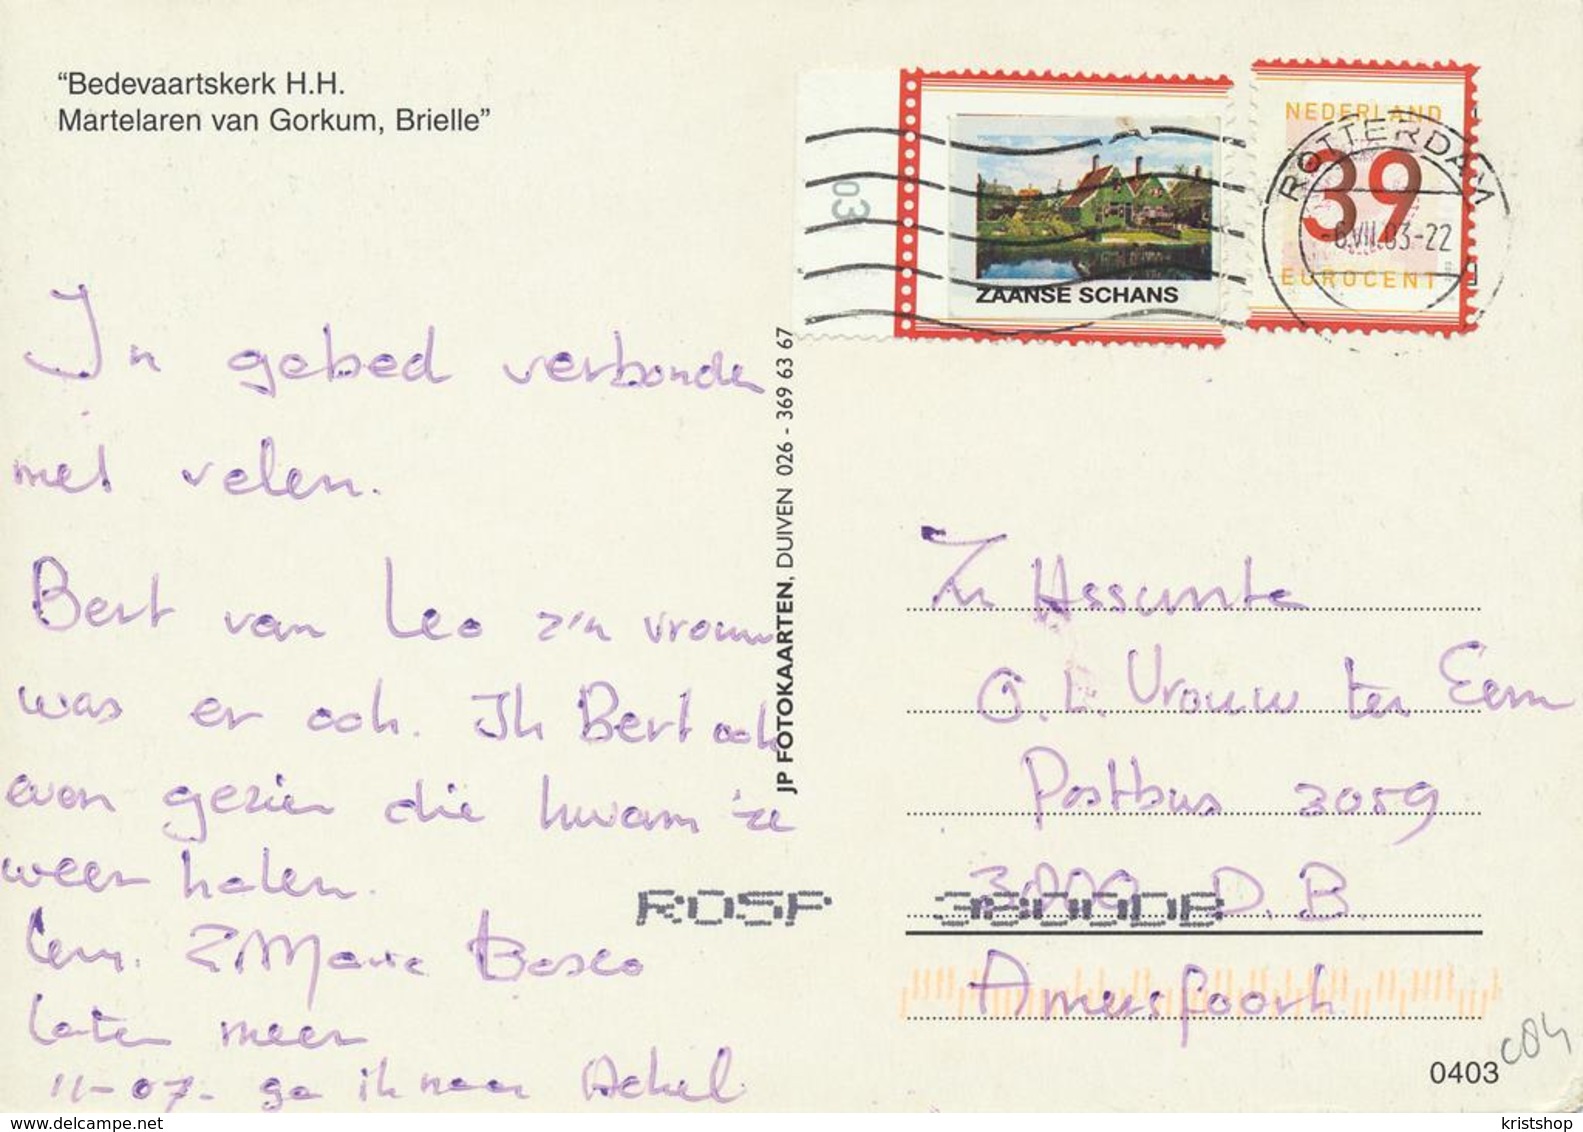 “Bedevaartskerk H.H.
Martelaren van Gorkum, Brielle”
In gebed verbonden
met velen.
Bert van Leo z'n vrouw
was er ook. Ik Bert ook
even gezien die kwam ze
weer halen.
Zr Maria Bosco
later meer
11-07- ga ik naar
JP FOTOKAARTEN, DUIVEN 026 - 369 63 67
03
ZAANSE SCHANS
NEDERLAND
39
EUROCENT
ROTTERDAM
-6.VII.03-22
Zr Assunta
O.L. Vrouw ter Eem
Postbus 3059
3800 D.B.
ROSP 3800DB
Amersfoort
0403
C04
kristshop